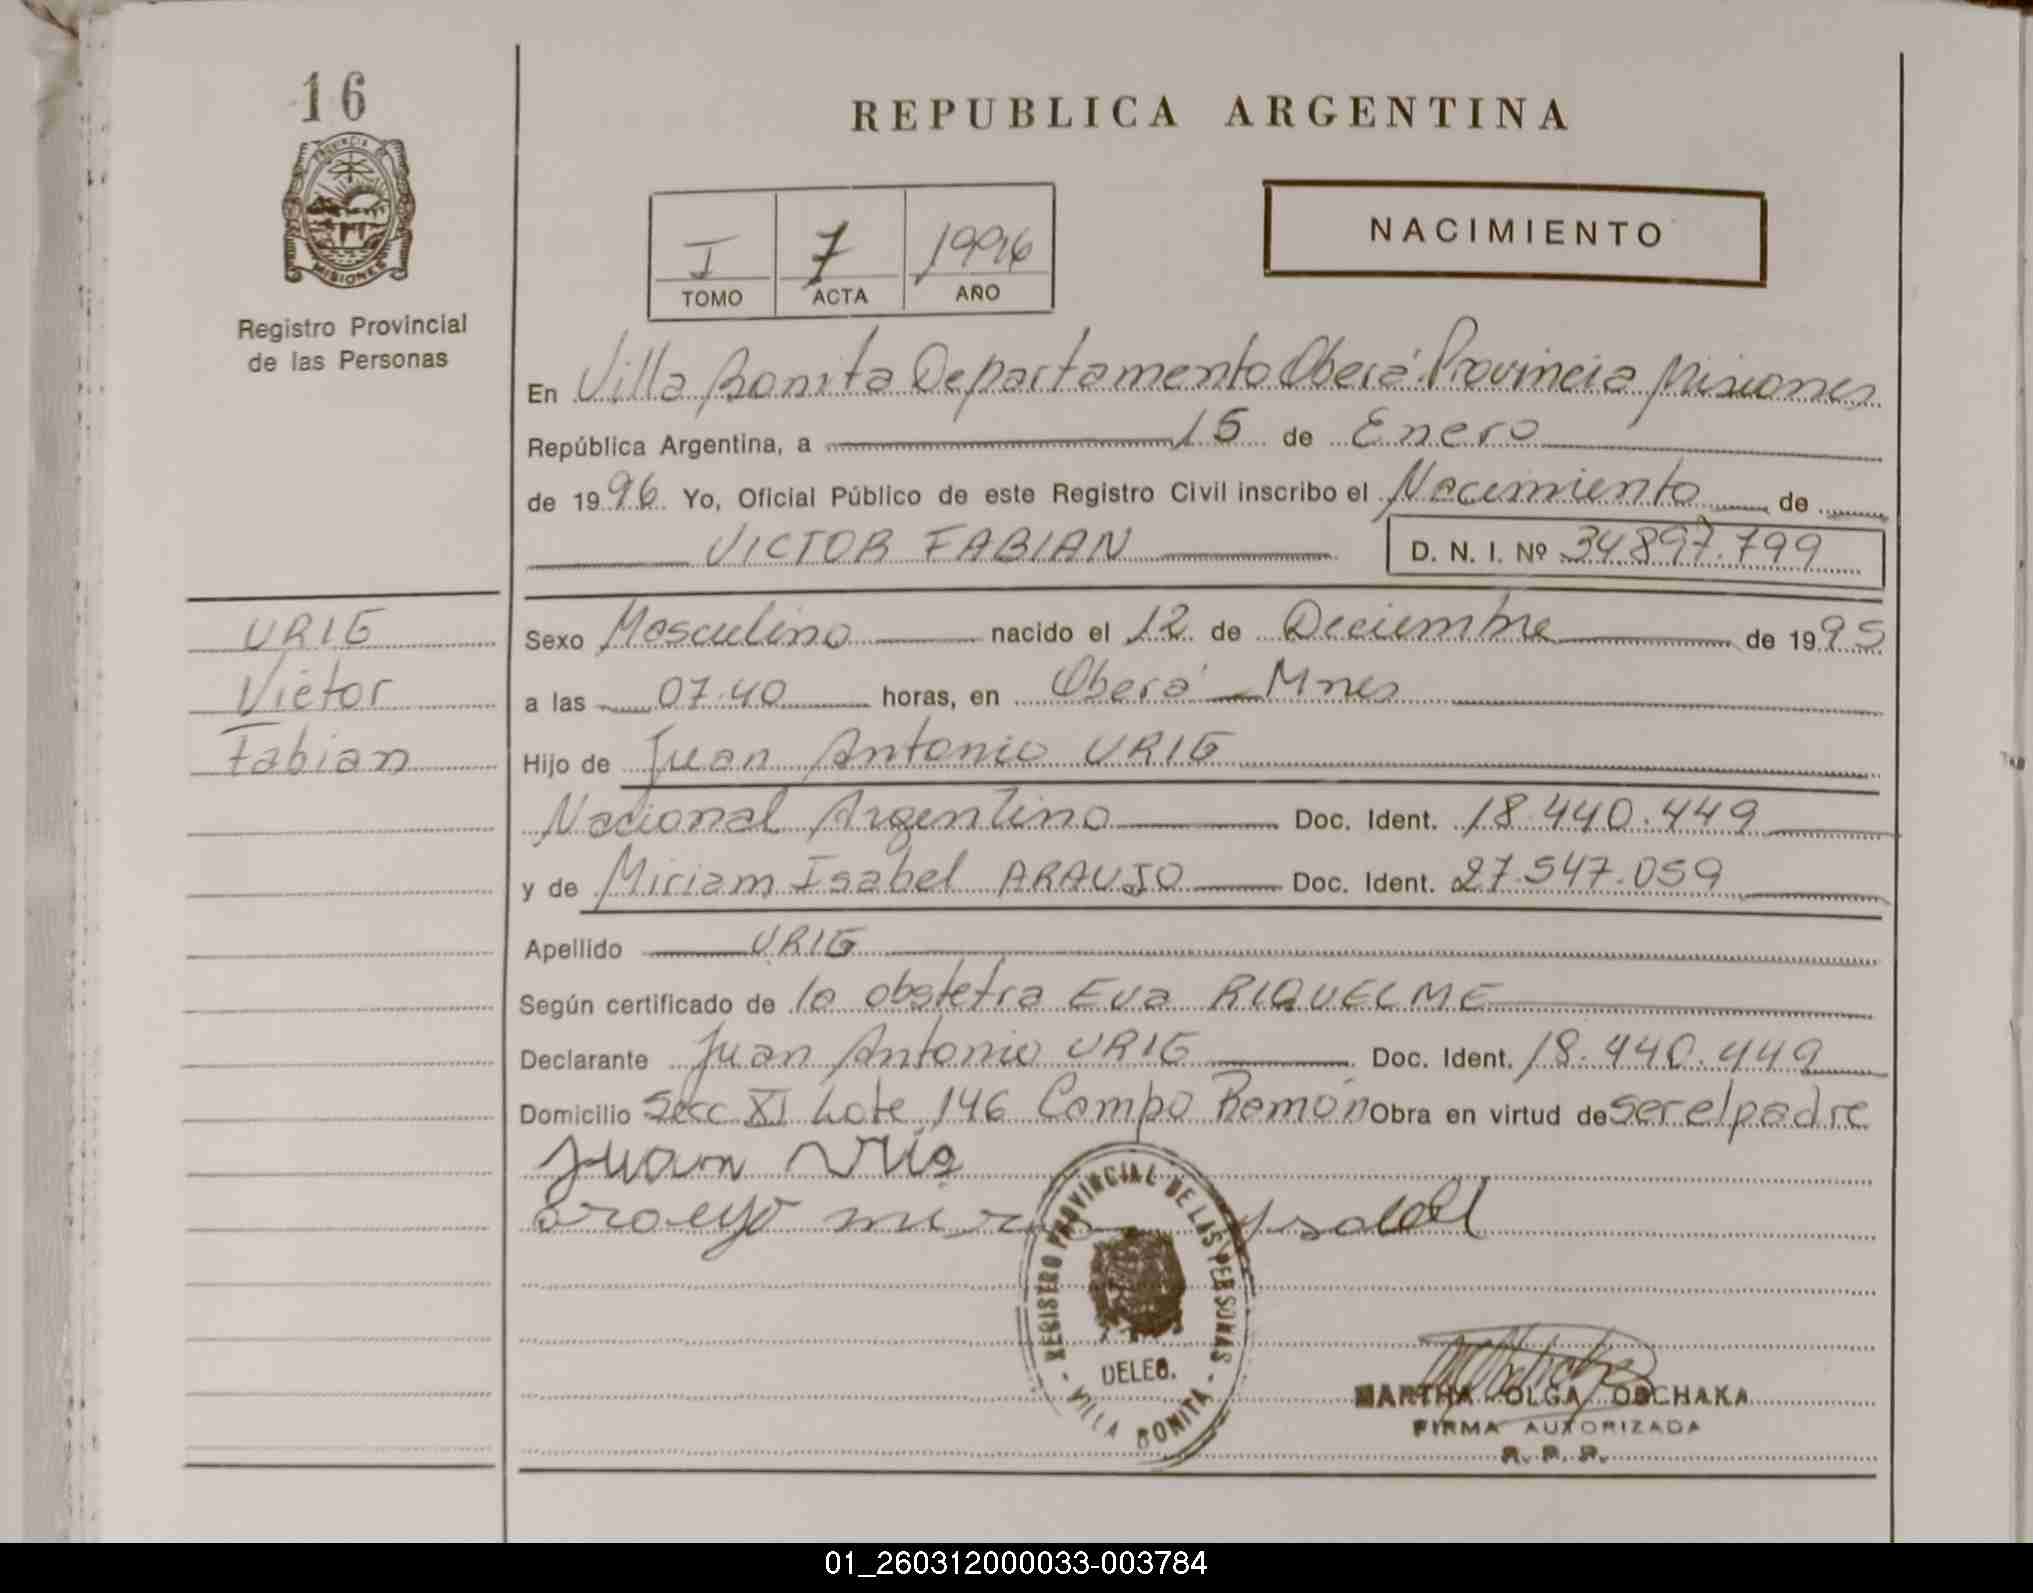 16
PROVINCIA DE
MISIONES
Registro Provincial
de las Personas
REPUBLICA ARGENTINA
I 7 1996
TOMO ACTA AÑO
NACIMIENTO
En Villa Bonita Departamento Oberá Provincia Misiones
República Argentina, a 15 de Enero
de 1996 Yo, Oficial Público de este Registro Civil inscribo el Nacimiento de
VICTOR FABIAN D. N. I. Nº 34.897.799
URIG
Victor
Fabian
Sexo Masculino nacido el 12 de Diciembre de 1995
a las 07.40 horas, en Oberá - Mnes
Hijo de Juan Antonio URIG
Nacional Argentino Doc. Ident. 18.440.449
y de Miriam Isabel ARAUJO Doc. Ident. 27.547.059
Apellido URIG
Según certificado de la obstetra Eva RIQUELME
Declarante Juan Antonio URIG Doc. Ident. 18.440.449
Domicilio Secc XI Lote 146 Campo Ramón Obra en virtud de ser el padre
Juan Urig
ysabel
REGISTRO PROVINCIAL DE LAS PERSONAS
DELEG.
VILLA BONITA
MARTHA OLGA OBCHAKA
FIRMA AUTORIZADA
R. P. P.
01_260312000033-003784